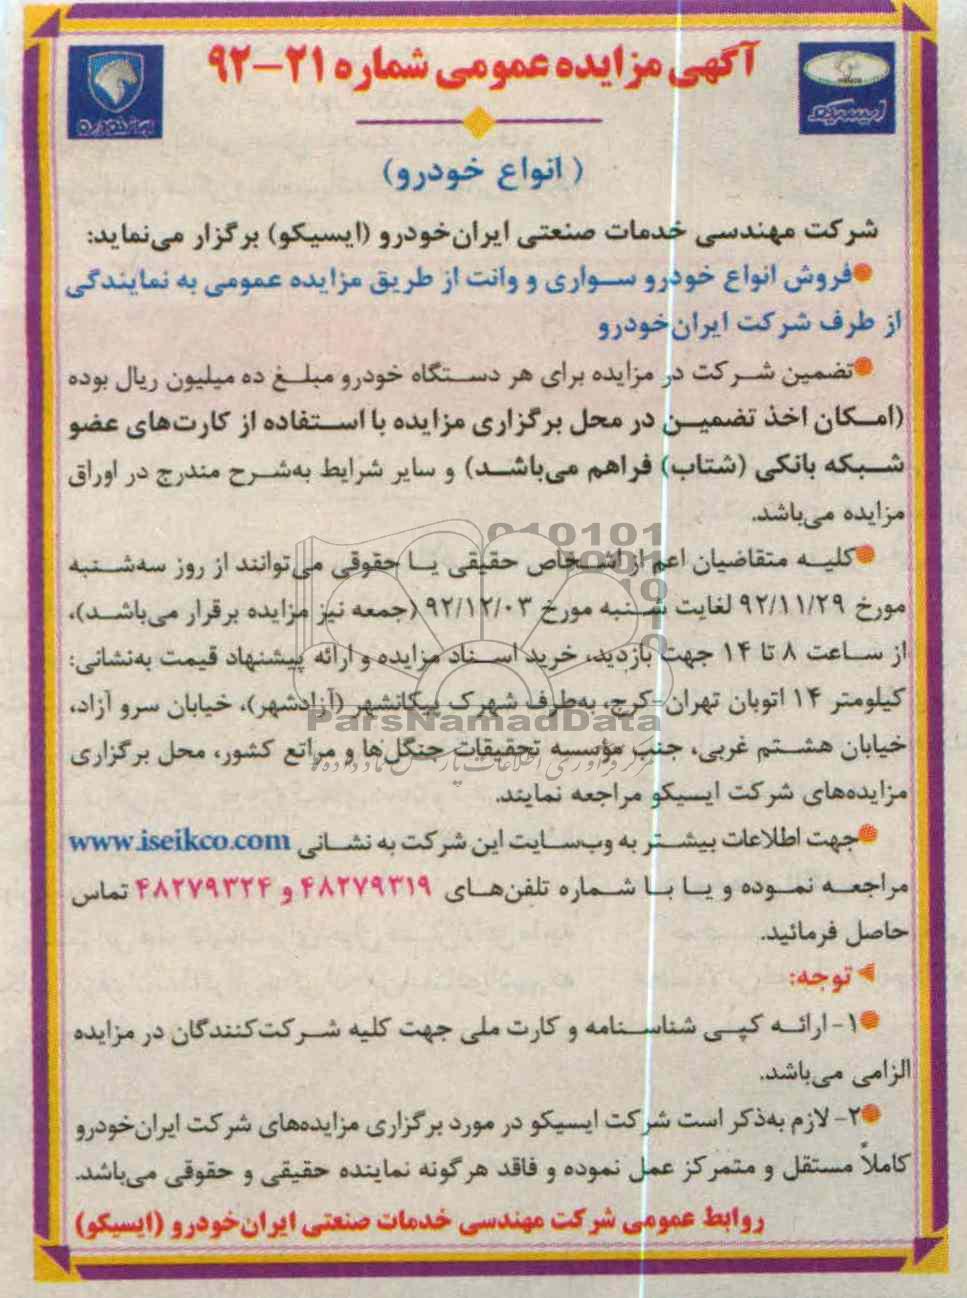 آگهی مزایده عمومی شماره ۲۱-۹۲
ایسیکو
ایران‌خودرو
(انواع خودرو)
شرکت مهندسی خدمات صنعتی ایران‌خودرو (ایسیکو) برگزار می‌نماید:
●فروش انواع خودرو سواری و وانت از طریق مزایده عمومی به نمایندگی
از طرف شرکت ایران‌خودرو
●تضمین شرکت در مزایده برای هر دستگاه خودرو مبلغ ده میلیون ریال بوده
(امکان اخذ تضمین در محل برگزاری مزایده با استفاده از کارت‌های عضو
شبکه بانکی (شتاب) فراهم می‌باشد) و سایر شرایط به‌شرح مندرج در اوراق
مزایده می‌باشد.
●کلیه متقاضیان اعم از اشخاص حقیقی یا حقوقی می‌توانند از روز سه‌شنبه
مورخ ۹۲/۱۱/۲۹ لغایت شنبه مورخ ۹۲/۱۲/۰۳ (جمعه نیز مزایده برقرار می‌باشد)،
از ساعت ۸ تا ۱۴ جهت بازدید، خرید اسناد مزایده و ارائه پیشنهاد قیمت به‌نشانی:
کیلومتر ۱۴ اتوبان تهران-کرج، به‌طرف شهرک پیکانشهر (آزادشهر)، خیابان سرو آزاد،
ParsNamadData
خیابان هشتم غربی، جنب مؤسسه تحقیقات جنگل‌ها و مراتع کشور، محل برگزاری
مزایده‌های شرکت ایسیکو مراجعه نمایند.
●جهت اطلاعات بیشتر به وب‌سایت این شرکت به نشانی www.iseikco.com
مراجعه نموده و یا با شماره تلفن‌های ۴۸۲۷۹۳۱۹ و ۴۸۲۷۹۳۲۴ تماس
حاصل فرمائید.
توجه:
●۱- ارائه کپی شناسنامه و کارت ملی جهت کلیه شرکت‌کنندگان در مزایده
الزامی می‌باشد.
●۲- لازم به‌ذکر است شرکت ایسیکو در مورد برگزاری مزایده‌های شرکت ایران‌خودرو
کاملاً مستقل و متمرکز عمل نموده و فاقد هرگونه نماینده حقیقی و حقوقی می‌باشد.
روابط عمومی شرکت مهندسی خدمات صنعتی ایران‌خودرو (ایسیکو)